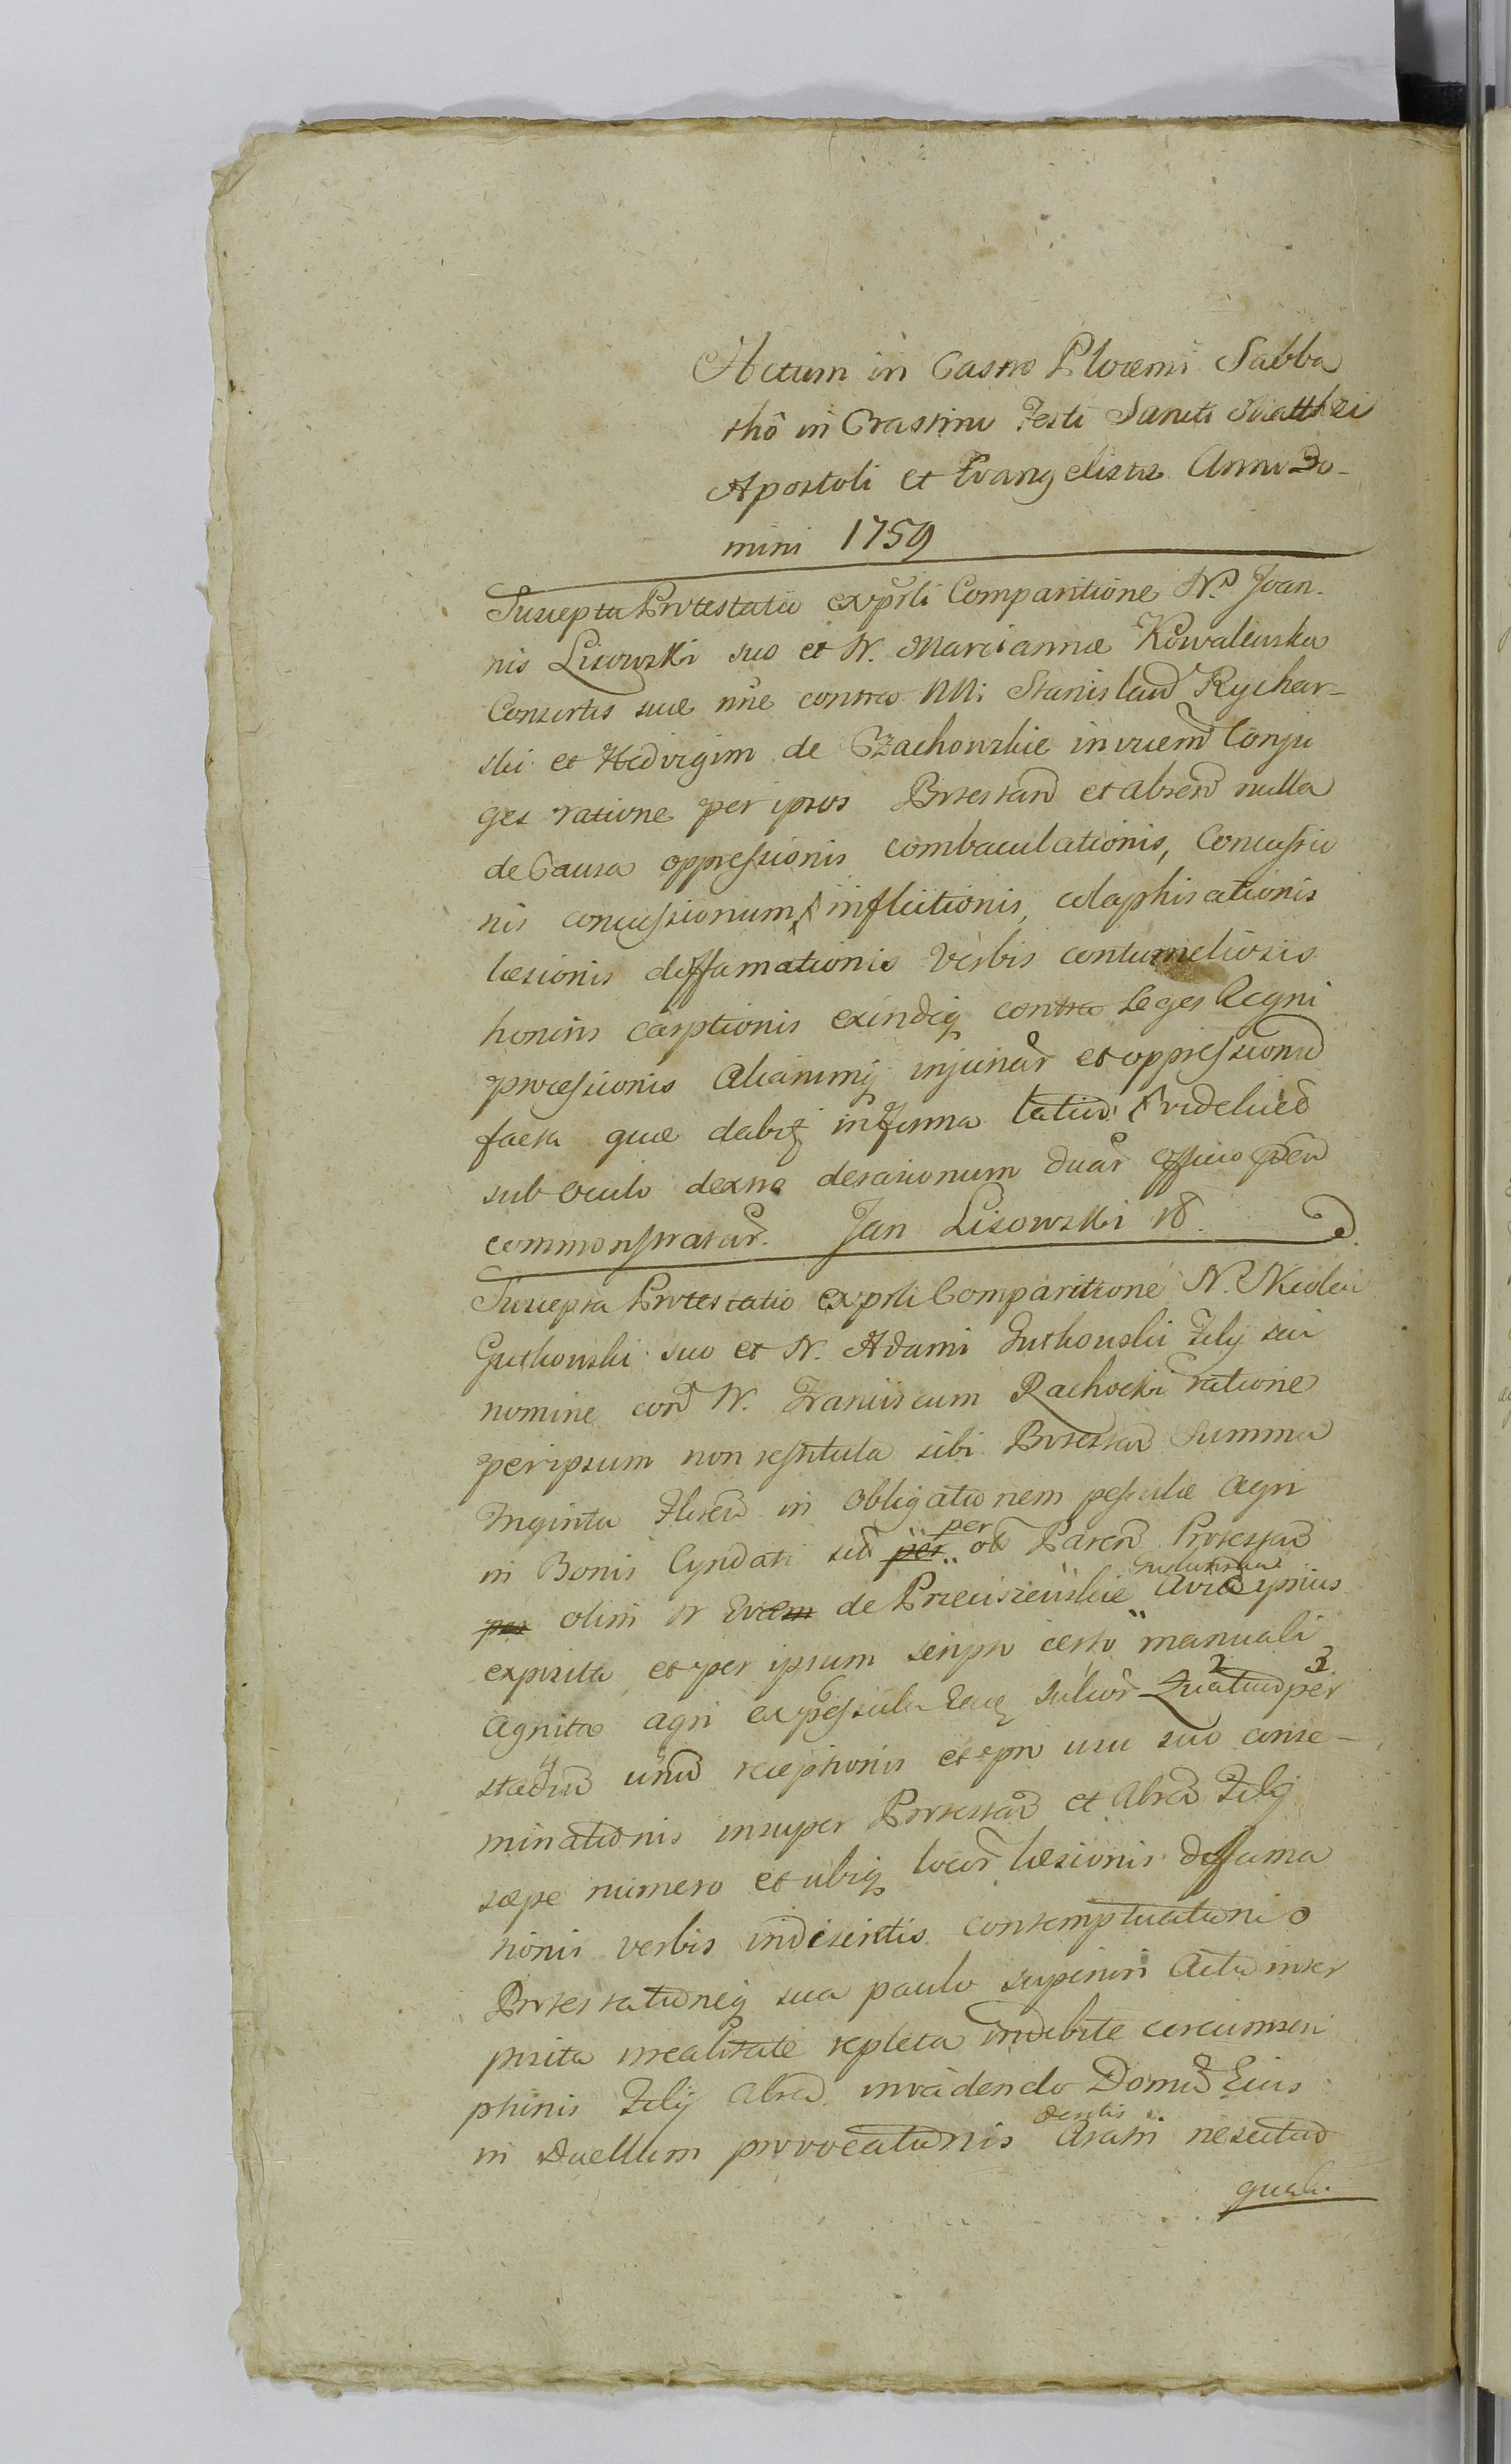 Actum in Castro Plocensi Sabba
thô in Crastino Festi Sancti Matthei
Apostoli et Evangelistæ Anno Do-
mini 1759
Suscepta Protestatio ex prsli Comparitione N. Joan-
nis Lisowski suo et N. Mariannæ Kowalewska
Consortis suæ nne contra NN: Stanislaum Rychar-
ski et Hedvigim de Czachowskie invicem Conju
ges ratione per ipsos Protestan et absen nulla
de Causa oppressionis combaculationis, Concussio
nis concussionum inflictionis, colaphisationis
læsionis diffamationis Verbis contumeliosis
honoris carptionis exindeq contra Leges Regni
processionis Aliarumq injuriar et oppressionu
facta quæ dabit in forma latiori videlicet
sub oculo dextro duar officio
commonstratar. Jan Lisowski
Suscepta Protestatio ex prsli Comparitione N. Nicolai
Gutkowski suo et N. Adami Gutkowski Filij sui
nomine con N. Franciscum Rachocki ratione
per ipsum non restituta sibi Protestan Summa
Triginta Floren in obligationem pessulæ agri
in Bonis Cyndati per per ob Paren Protestan
per olim N de Przeciszewskie Avia ipsius
exposita et per ipsum scripto certo manuali
Agnita agri ex pessula sulcor Quatuor per 2 3
4 unu receptionis et pro usu suo conse-
minationis insuper Protestan et Absen Filij
sæpe numero et ubiq locor læsionis diffama
tionis verbis indiscretis contemptuationis
Protestationeq sua paulo superiori Actis inser
pisita irrealitate repleta indebite circumscri
ptionis Filij Absen invadendo Domum Eius
in Duellum provocationis dentis Aratri nescitur
quali.